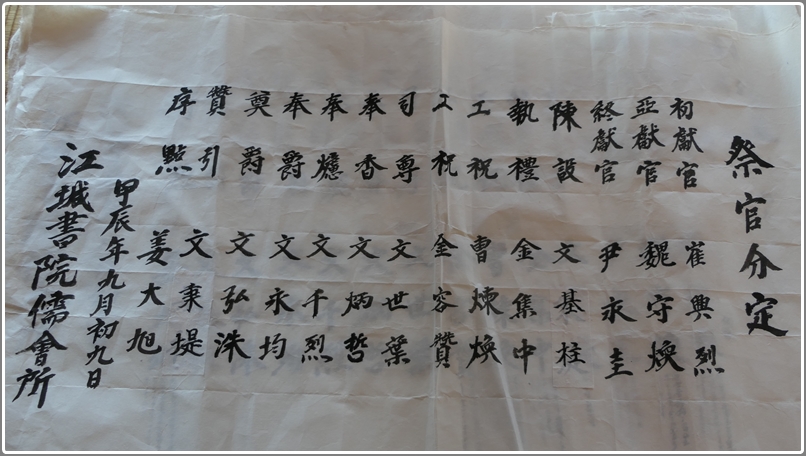 祭官分定
初獻官 崔興烈
亞獻官 魏守煥
終獻官 尹永圭
陳設 文基柱
執禮 金集中
工祝 曺煉煥
工祝 金容贊
司尊 文世葉
奉香 文炳哲
奉爐 文千烈
奉爵 文永均
奠爵 文弘洙
贊引 文秉堤
序點 姜大旭
甲辰年九月初九日
江城書院儒會所